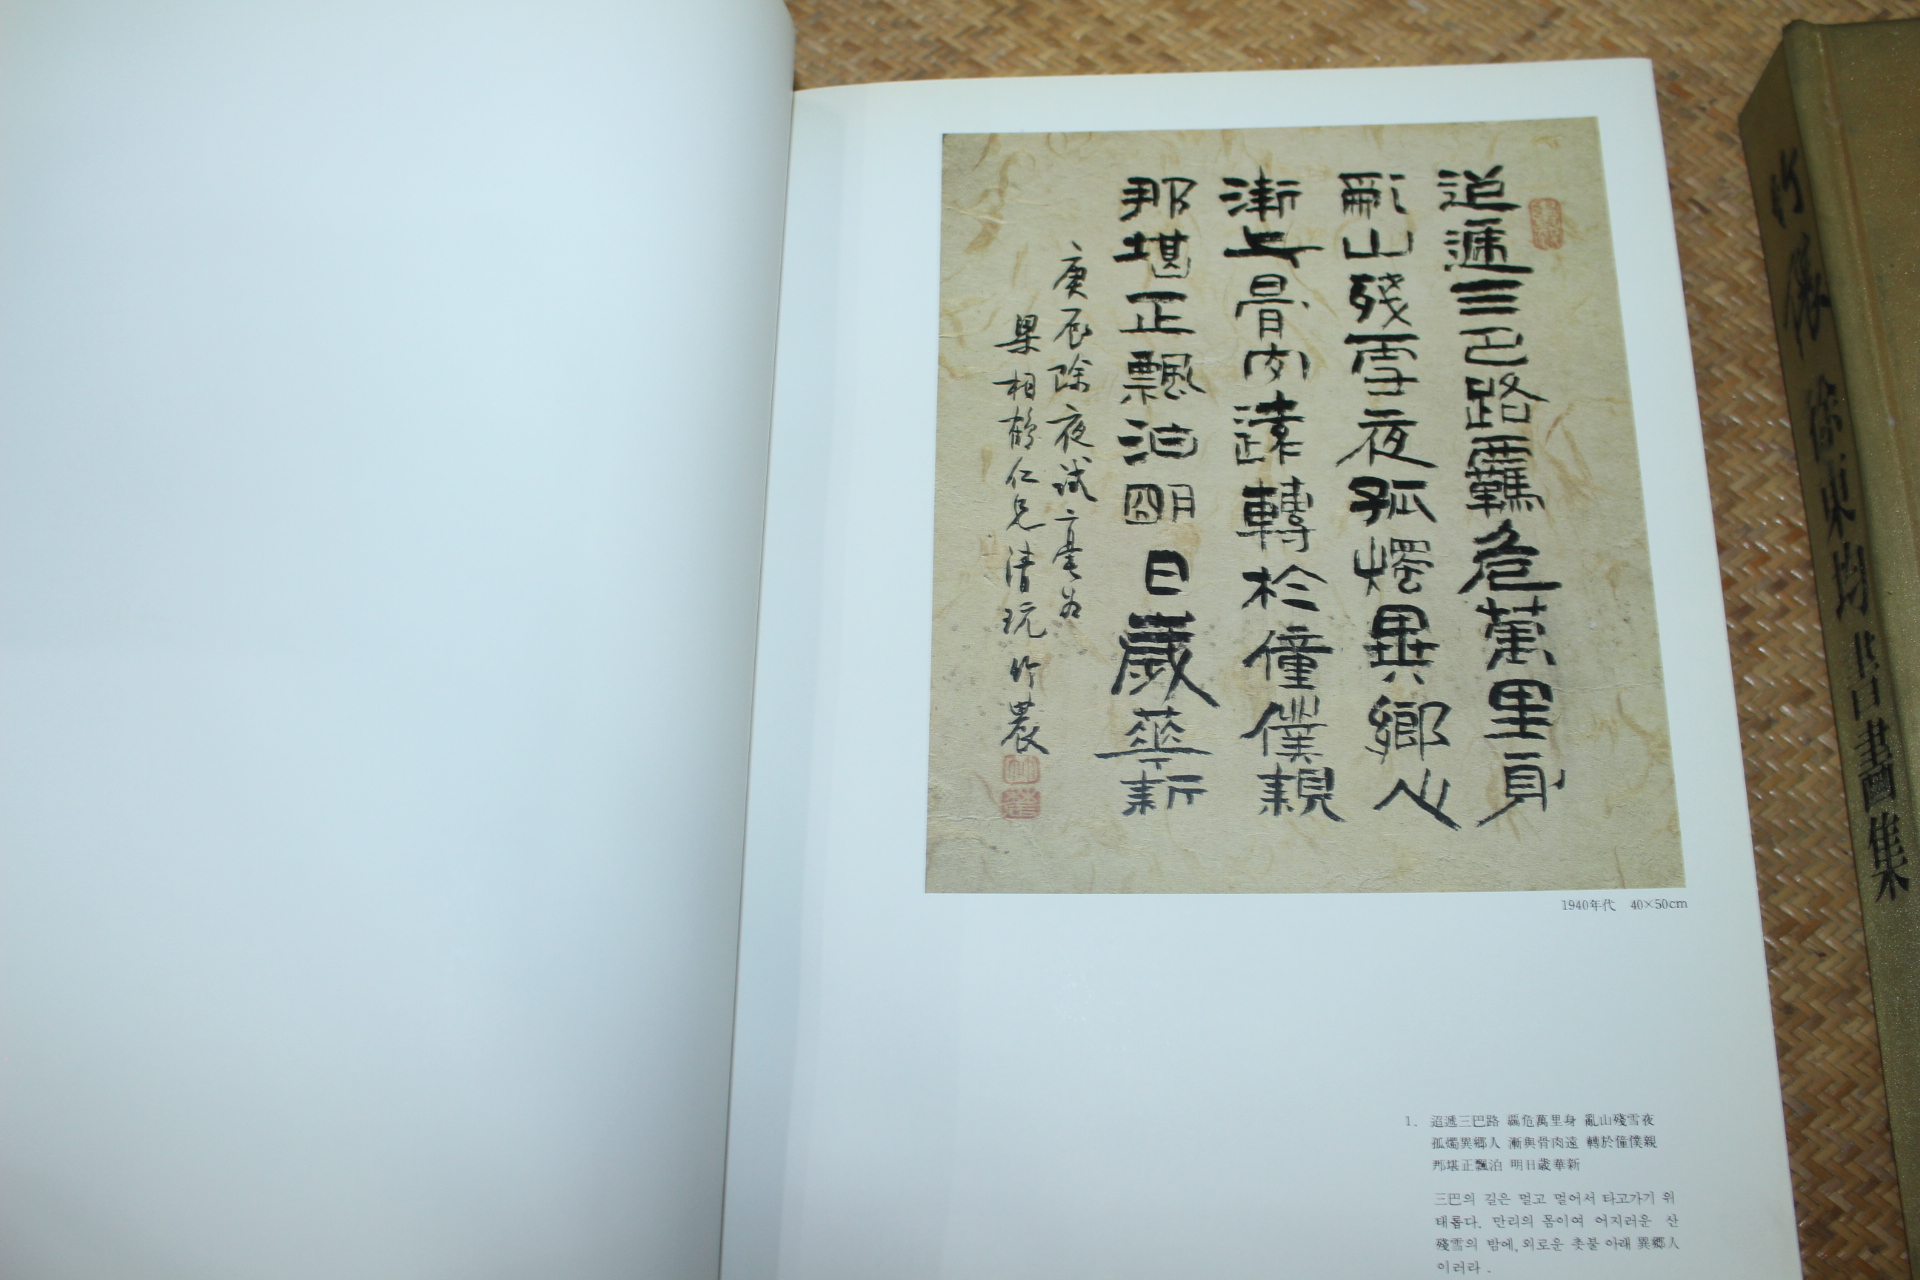 迢遞三巴路羈危萬里身
亂山殘雪夜孤燭異鄕人
漸与骨肉遠轉於僮僕親
那堪正飄泊明日歲華新
庚辰除夜試毫爲
梁相鶴仁兄淸玩 竹農
1940年代 40×50cm
1. 迢遞三巴路 羈危萬里身 亂山殘雪夜
孤燭異鄕人 漸與骨肉遠 轉於僮僕親
那堪正飄泊 明日歲華新
三巴의 길은 멀고 멀어서 타고가기 위
태롭다. 만리의 몸이여 어지러운 산
殘雪의 밤에, 외로운 촛불 아래 異鄕人
이러라.
竹儂 徐東均 書畵集